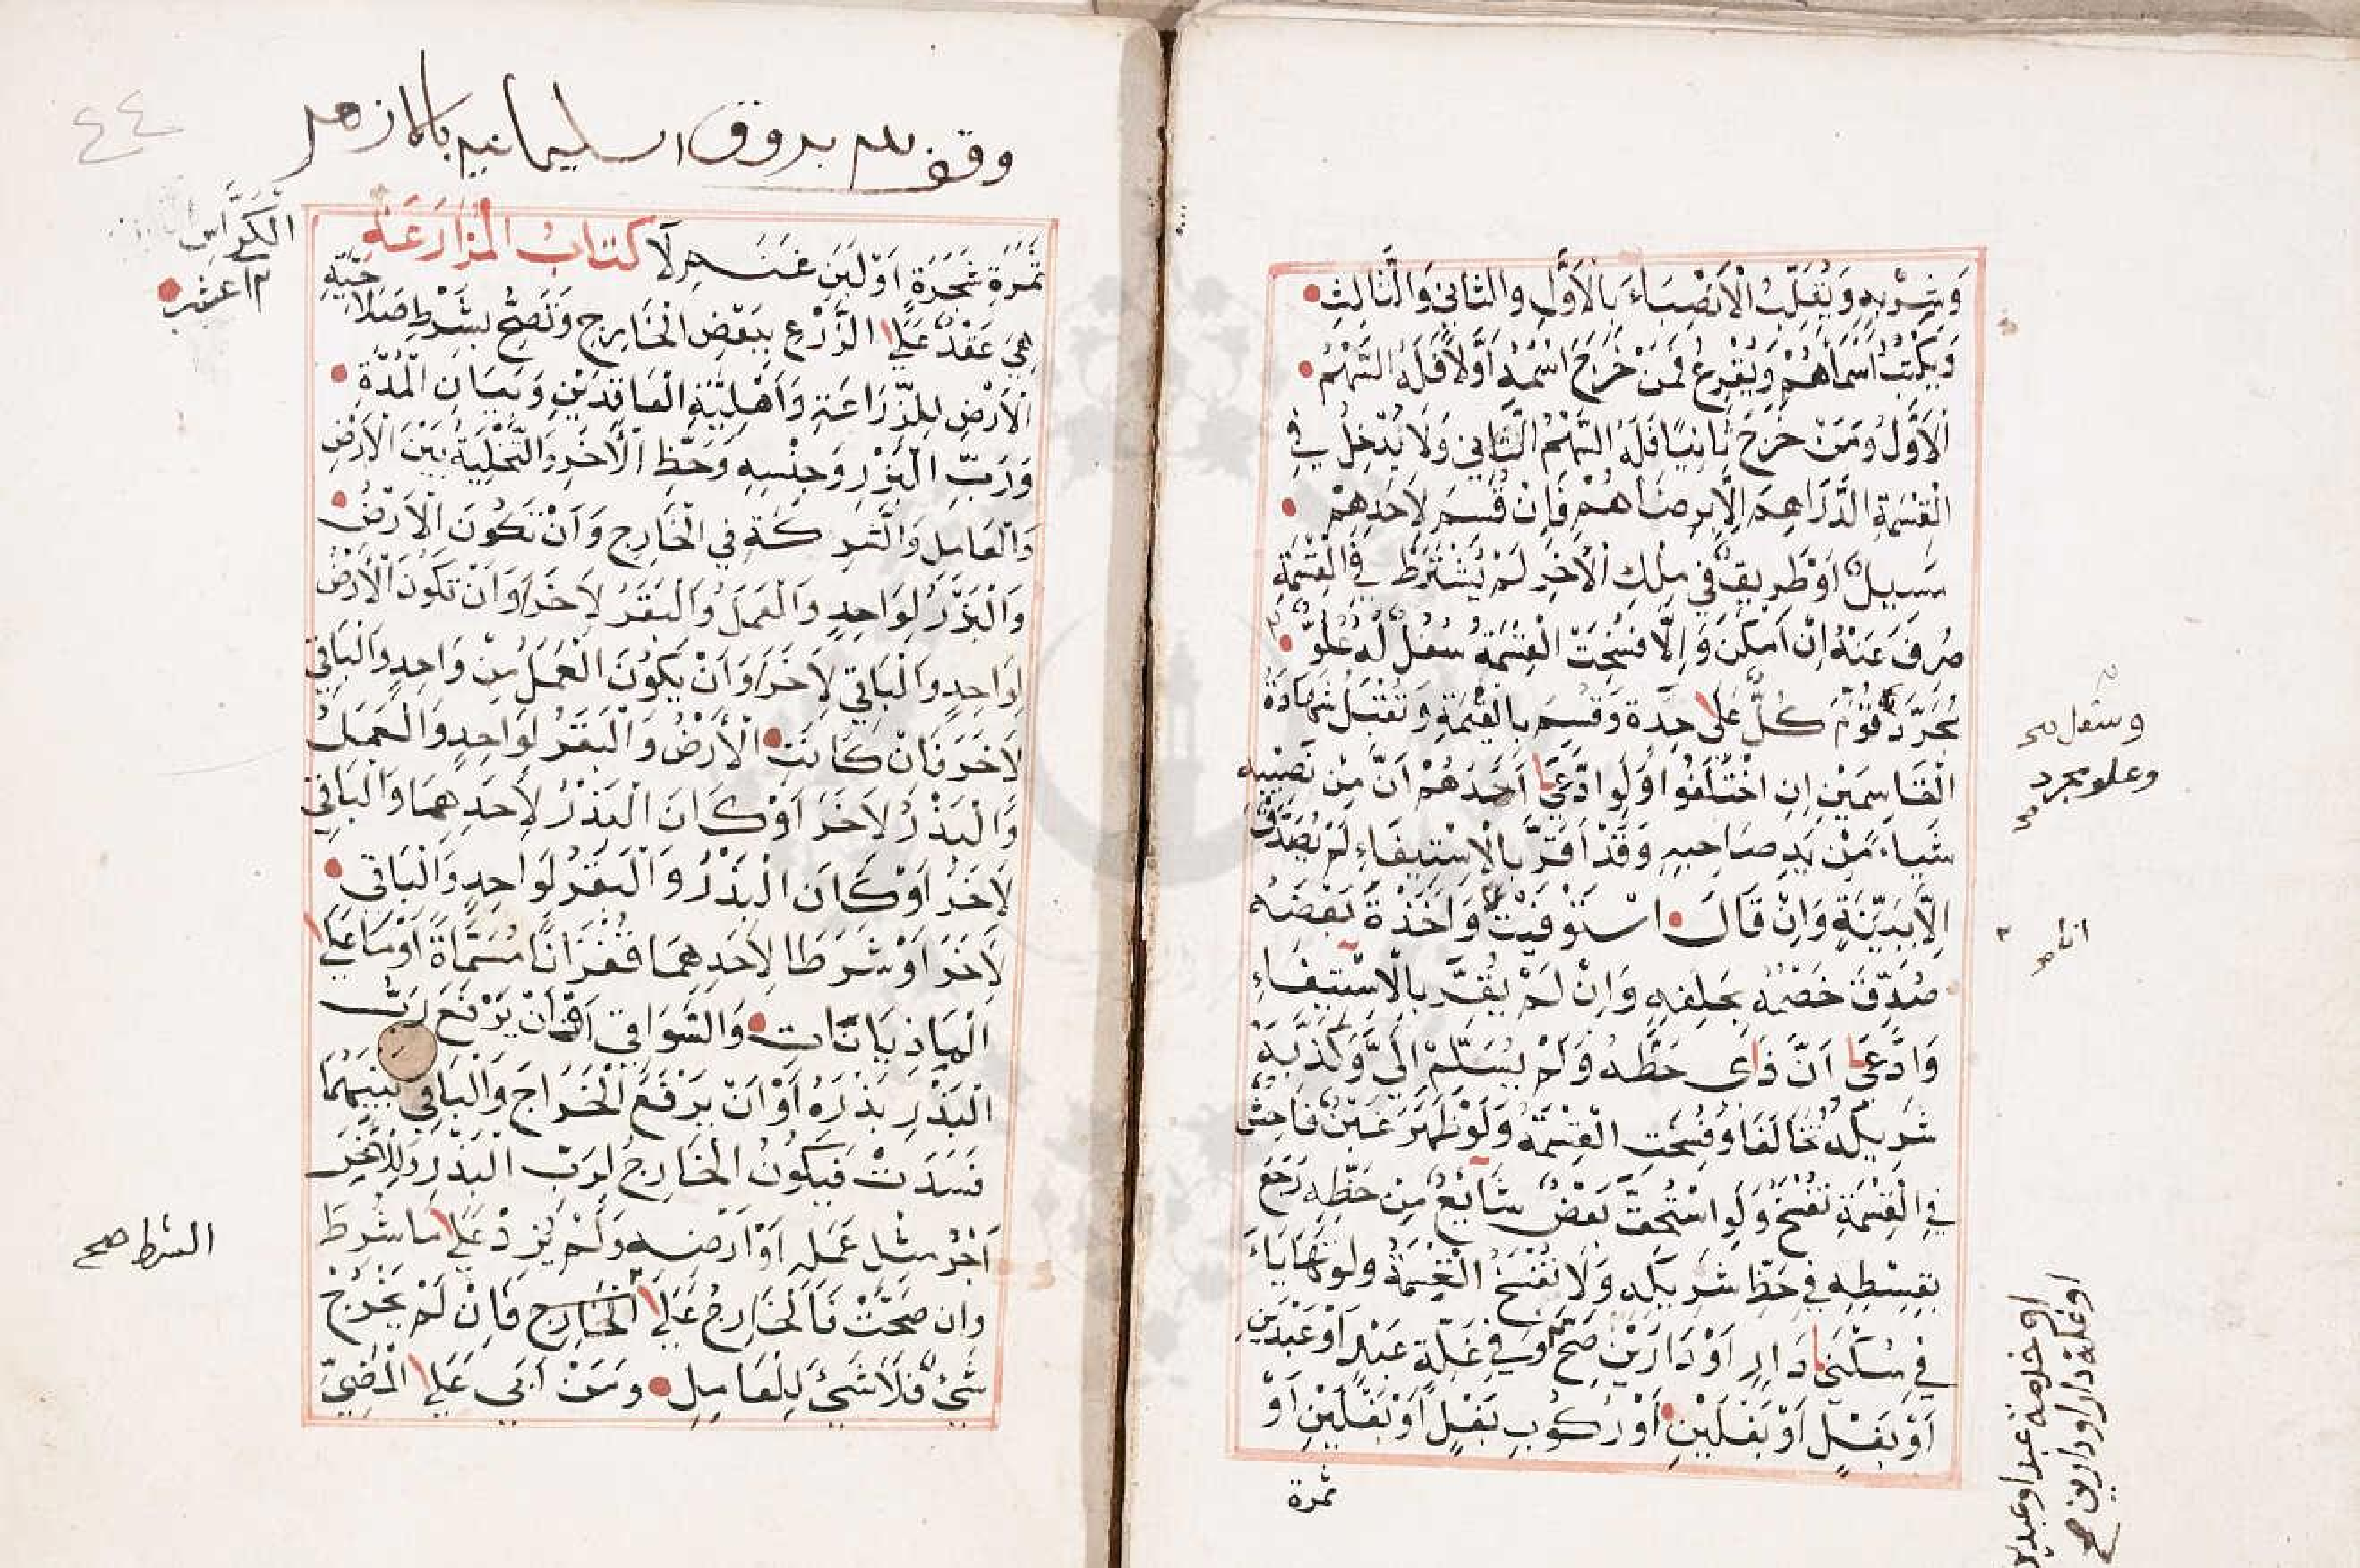 وَشِرْبِهِ وَيُقَلِّبُ الْأَنْصِبَاءَ بِالْأَوَّلِ وَالثَّانِي وَالثَّالِثِ
وَيَكْتُبُ اَسْمَاَهُمْ وَيُقْرِعُ فَمَنْ خَرَجَ اسْمُهُ اَوَّلًا فَلَهُ السَّهْمُ
الْأَوَّلُ وَمَنْ خَرَجَ ثَانِيًا فَلَهُ السَّهْمُ الثَّانِي وَلَا يُدْخِلُ فِي
الْقِسْمَةِ الدَّرَاهِمَ إِلَّا بِرِضَاهُمْ فَإِنْ قُسِمَ لِأَحَدِهِمْ
مَسِيلٌ اَوْ طَرِيقٌ فِي مِلْكِ الْآخَرِ لَمْ يُشْتَرَطْ فِي الْقِسْمَةِ
صُرِفَ عَنْهُ اِنْ اَمْكَنَ وَإِلَّا فُسِخَتْ الْقِسْمَةُ سُفْلٌ لَهُ عُلُوٌّ
مُجَرَّدٌ قُوِّمَ كُلٌّ عَلَى حِدَةٍ وَقُسِمَ بِالْقِيمَةِ وَتُقْبَلُ شَهَادَةُ
الْقَاسِمَيْنِ إِنِ اخْتَلَفُوا وَلَوِ ادَّعَى اَحَدُهُمْ اَنَّ مِنْ نَصِيبِهِ
شَيْاءً مِنْ يَدِ صَاحِبِهِ وَقَدْ اَقَرَّ بِالْاِسْتِيفَاءِ لَمْ يُصَدَّقْ
اِلَّا بِبَيِّنَةٍ وَإِنْ قَالَ اسْتَوْفَيْتُ وَاَخَذْةَ بَعْضَهُ
صُدِّقَ خَصْمُهُ بِحَلِفِهِ وَإِنْ لَمْ يُقِرَّ بِالْاِسْتِيفَاءِ
وَادَّعَى اَنَّ ذَاى حَظُّهُ وَلَمْ يُسَلِّمْ اِلَيَّ وَكَذَّبَهُ
شَرِيكُهُ تَحَالَفَا وَفُسِخَتِ الْقِسْمَةُ وَلَوْ ظَهَرَ غَبْنٌ فَاحِشٌ
فِي الْقِسْمَةِ تُفْسَخُ وَلَوِ اسْتُحِقَّ بَعْضٌ شَآئِعٌ مِنْ حَظِّهِ رَجَعَ
بِقِسْطِهِ فِي حَظِّ شَرِيكِهِ وَلَا تُفْسَخُ الْقِسْمَةُ وَلَوْ تَهَايَاءَ
فِي سُكْنَى دَارٍ اَوْ دَارَيْنِ صَحَّ وَفِي غَلَّةِ عَبْدٍ اَوْ عَبْدَيْنِ
اَوْ بَغْلٍ اَوْ بَغْلَيْنِ اَوْ رُكُوبِ بَغْلٍ اَوْ بَغْلَيْنِ اَوْ
ثمرة
وسفل صح
وعلو مجرد
او خدمة عبد او عبدين
او غلة دار او دارين صح
٤٤
وقف لله برواق السليمانيه بالازهر
الْكَرَّاسِ
٣ عشر
ثَمَرَةِ شَجَرَةٍ اَوْ لَبَنِ غَنَمٍ لَا كتابُ الْمُزَارَعَةِ
هِيَ عَقْدٌ عَلَى الزَّرْعِ بِبَعْضِ الْخَارِجِ وَتَصِحُّ بِشَرْطِ صَلَاحِيَّةِ
الْأَرْضِ لِلزِّرَاعَةِ وَاَهْلِيَّةِ الْعَاقِدَيْنِ وَبَيَانِ الْمُدَّةِ
وَرَبِّ الْبَزْرِ وَجِنْسِهِ وَحَظِّ الْآخَرِ وَالتَّخْلِيَةِ بَيْنَ الْاَرْضِ
وَالْعَامِلِ وَالشِّرْكَةِ فِي الْخَارِجِ وَاَنْ تَكُونَ الْاَرْضُ
وَالْبَذْرُ لِوَاحِدٍ وَالْعَمَلُ وَالْبَقَرُ لِآخَرَ اَوَ اَنْ تَكُونَ الْأَرْضُ
لِوَاحِدٍ وَالْبَاقِي لِآخَرَ اَوَ اَنْ يَكُونَ الْعَمَلُ مِنْ وَاحِدٍ وَالْبَاقِي
لِآخَرَ فَاِنْ كَانَتِ الْأَرْضُ وَالْبَقَرُ لِوَاحِدٍ وَالْعَمَلُ
وَالْبَذْرُ لِآخَرَ اَوْ كَانَ الْبَذْرُ لِأَحَدِهِمَا وَالْبَاقِي
لِآخَرَ اَوْ كَانَ الْبَذْرُ وَالْبَقَرُ لِوَاحِدٍ وَالْبَاقِي
لِآخَرَ اَوْ شَرَطَا لِاَحَدِهِمَا قُفْزَانًا مُسَمَّاةً اَوْ مَا عَلَى
الْمَاذِيَانَاتِ وَالسَّوَاقِي اَوْ اَنْ يَرْفَعَ رَبُّ
الْبَذْرِ بَذْرَهُ اَوْ اَنْ يَرْفَعَ الْخَرَاجَ وَالْبَاقِي بَيْنَهُمَا
فَسَدَتْ فَيَكُونُ الْخَارِجُ لِرَبِّ الْبَذْرِ وَلِلْآخَرِ
اَجْرُ مِثْلِ عَمَلِهِ اَوْ اَرْضِهِ وَلَمْ يُزَدْ عَلَى مَا شُرِطَ
وان صَحَّتْ فَالْخَارِجُ عَلَى الْخَارِجِ فَاِنْ لَمْ يَخْرُجْ
شَيْئٌ فَلَا شَيْئَ لِلْعَامِلِ وَمَنْ اَبَى عَلَى الْمُضِيِّ
الشرط صح